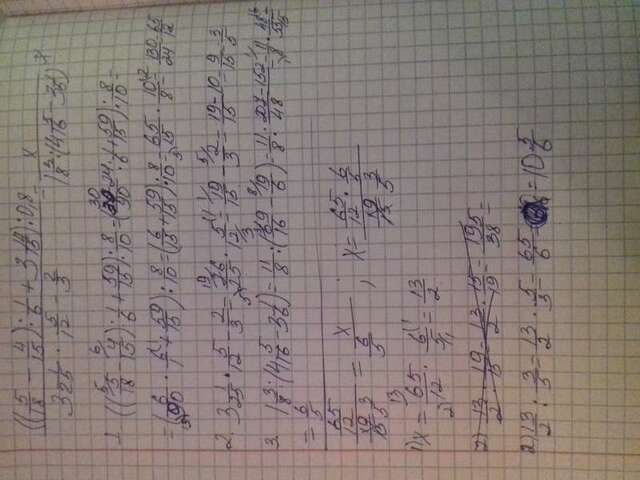 ((5/18 − 4/15) : 1/6 + 3 14/15) : 0,8 / (3 1/25 · 5/12 − 2/3) = x / (1 3/8 : (4 5/16 − 3 1/6))
1. ((5/18 − 4/15) : 1/6 + 59/15) : 8/10 = (/90 : 1/6 + 59/15) : 8/10 =
= (/90 · 6/1 + 59/15) : 8/10 = (6/15 + 59/15) : 8/10 = 65/15 · 10/8 = 130/24 = 65/12
2. 3 1/25 · 5/12 − 2/3 = 76/25 · 5/12 = 19/15 − 2/3 = 19−10/15 = 9/15 = 3/5
3. 1 3/8 : (4 5/16 − 3 1/6) = 11/8 : (69/16 − 19/6) = 11/8 : 207−152/48 = 11/8 · 48/55 =
= 6/5
65/12 / 3/5 = x / 6/5 ; x = 65/12 · 6/5 / 3/5
1) x = 65/12 · 6/5 = 13/2
2) 13/2 : 19/15 = 13/2 · 15/19 = 195/38 =
2) 13/2 : 3/5 = 13/2 · 5/3 = 65/6 = 10 5/6